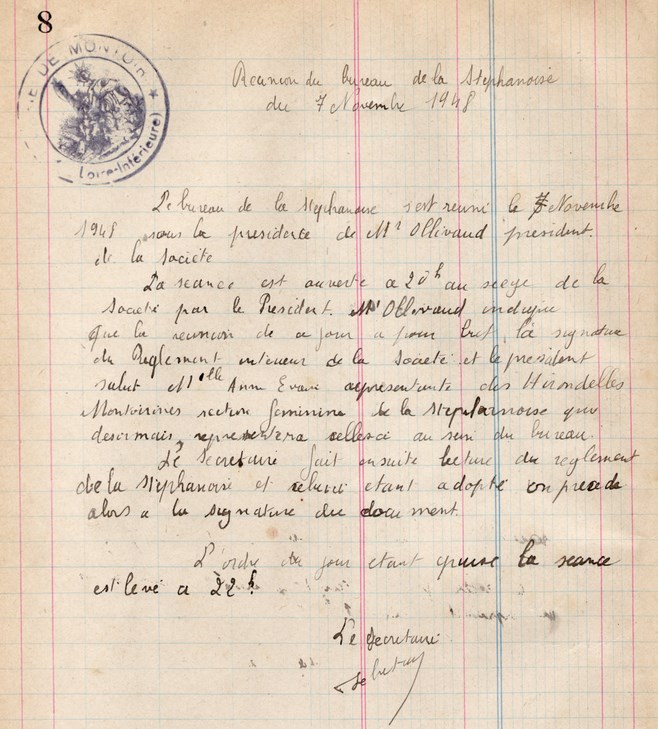 8
RIE DE MONTOIR ★
(Loire-Inférieure)
Reunion du bureau de la Stephanoise
du 7 Novembre 1948
Le bureau de la stephanoise s'est reuni le 7 Novembre
1948 sous la presidence de Mr Ollivaud president
de la Société
La seance est ouverte a 20h au siege de la
Société par le President. Mr Ollivaud indique
que la reunion de ce jour a pour but la signature
du Reglement interieur de la Société et le president
salut Melle Anne Evain representante des Hirondelles
Montoirines section feminine de la Stephanoise qui
desormais representera celles ci au sein du bureau.
Le Secretaire fait ensuite lecture du reglement
de la Stephanoise et celui ci etant adopté on procede
alors a la signature du document
L'ordre du jour etant epuisé la seance
est levé a 22h
Le Secretaire